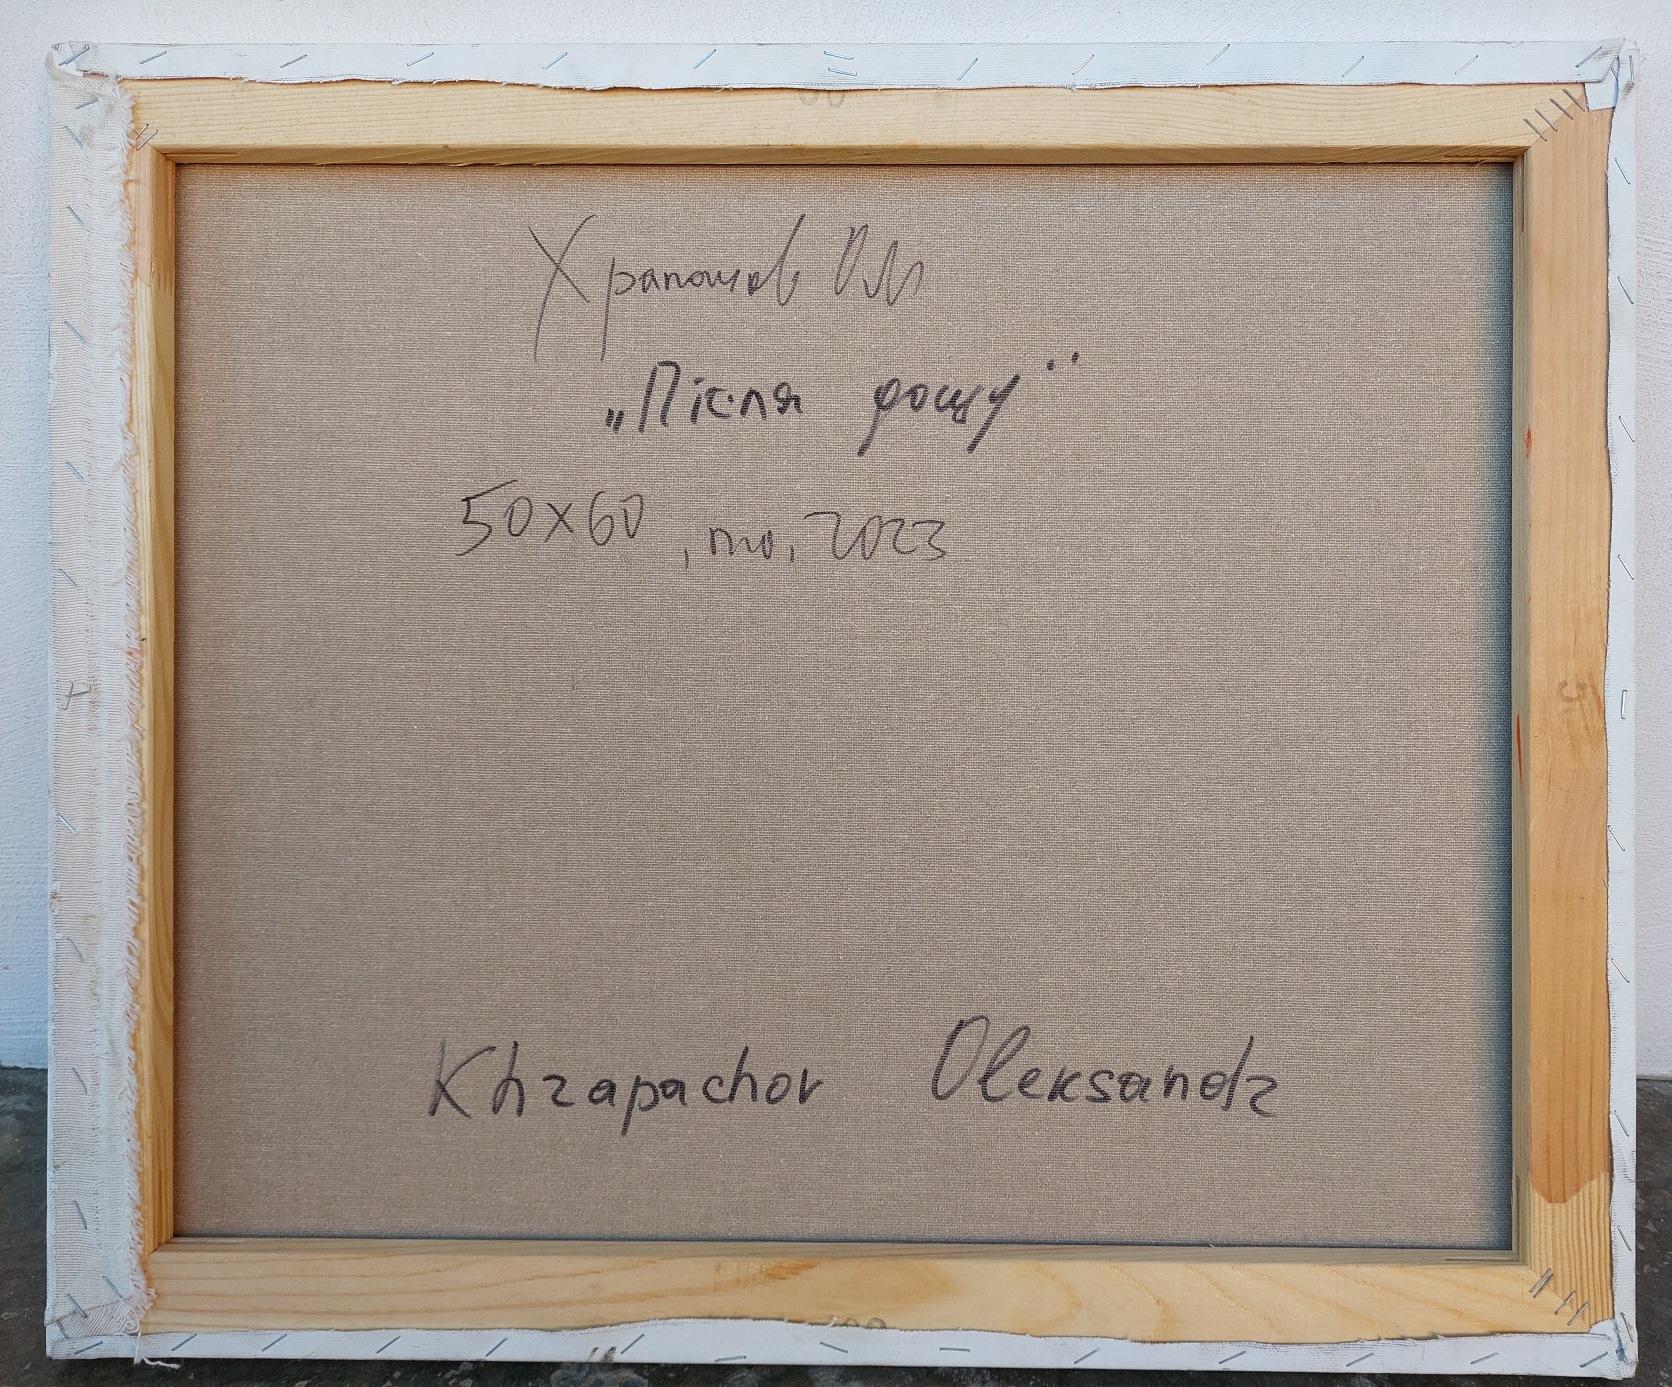 Храпачов Ол
„Після дощу"
50x60, по, 2023
Khrapachov Oleksandr